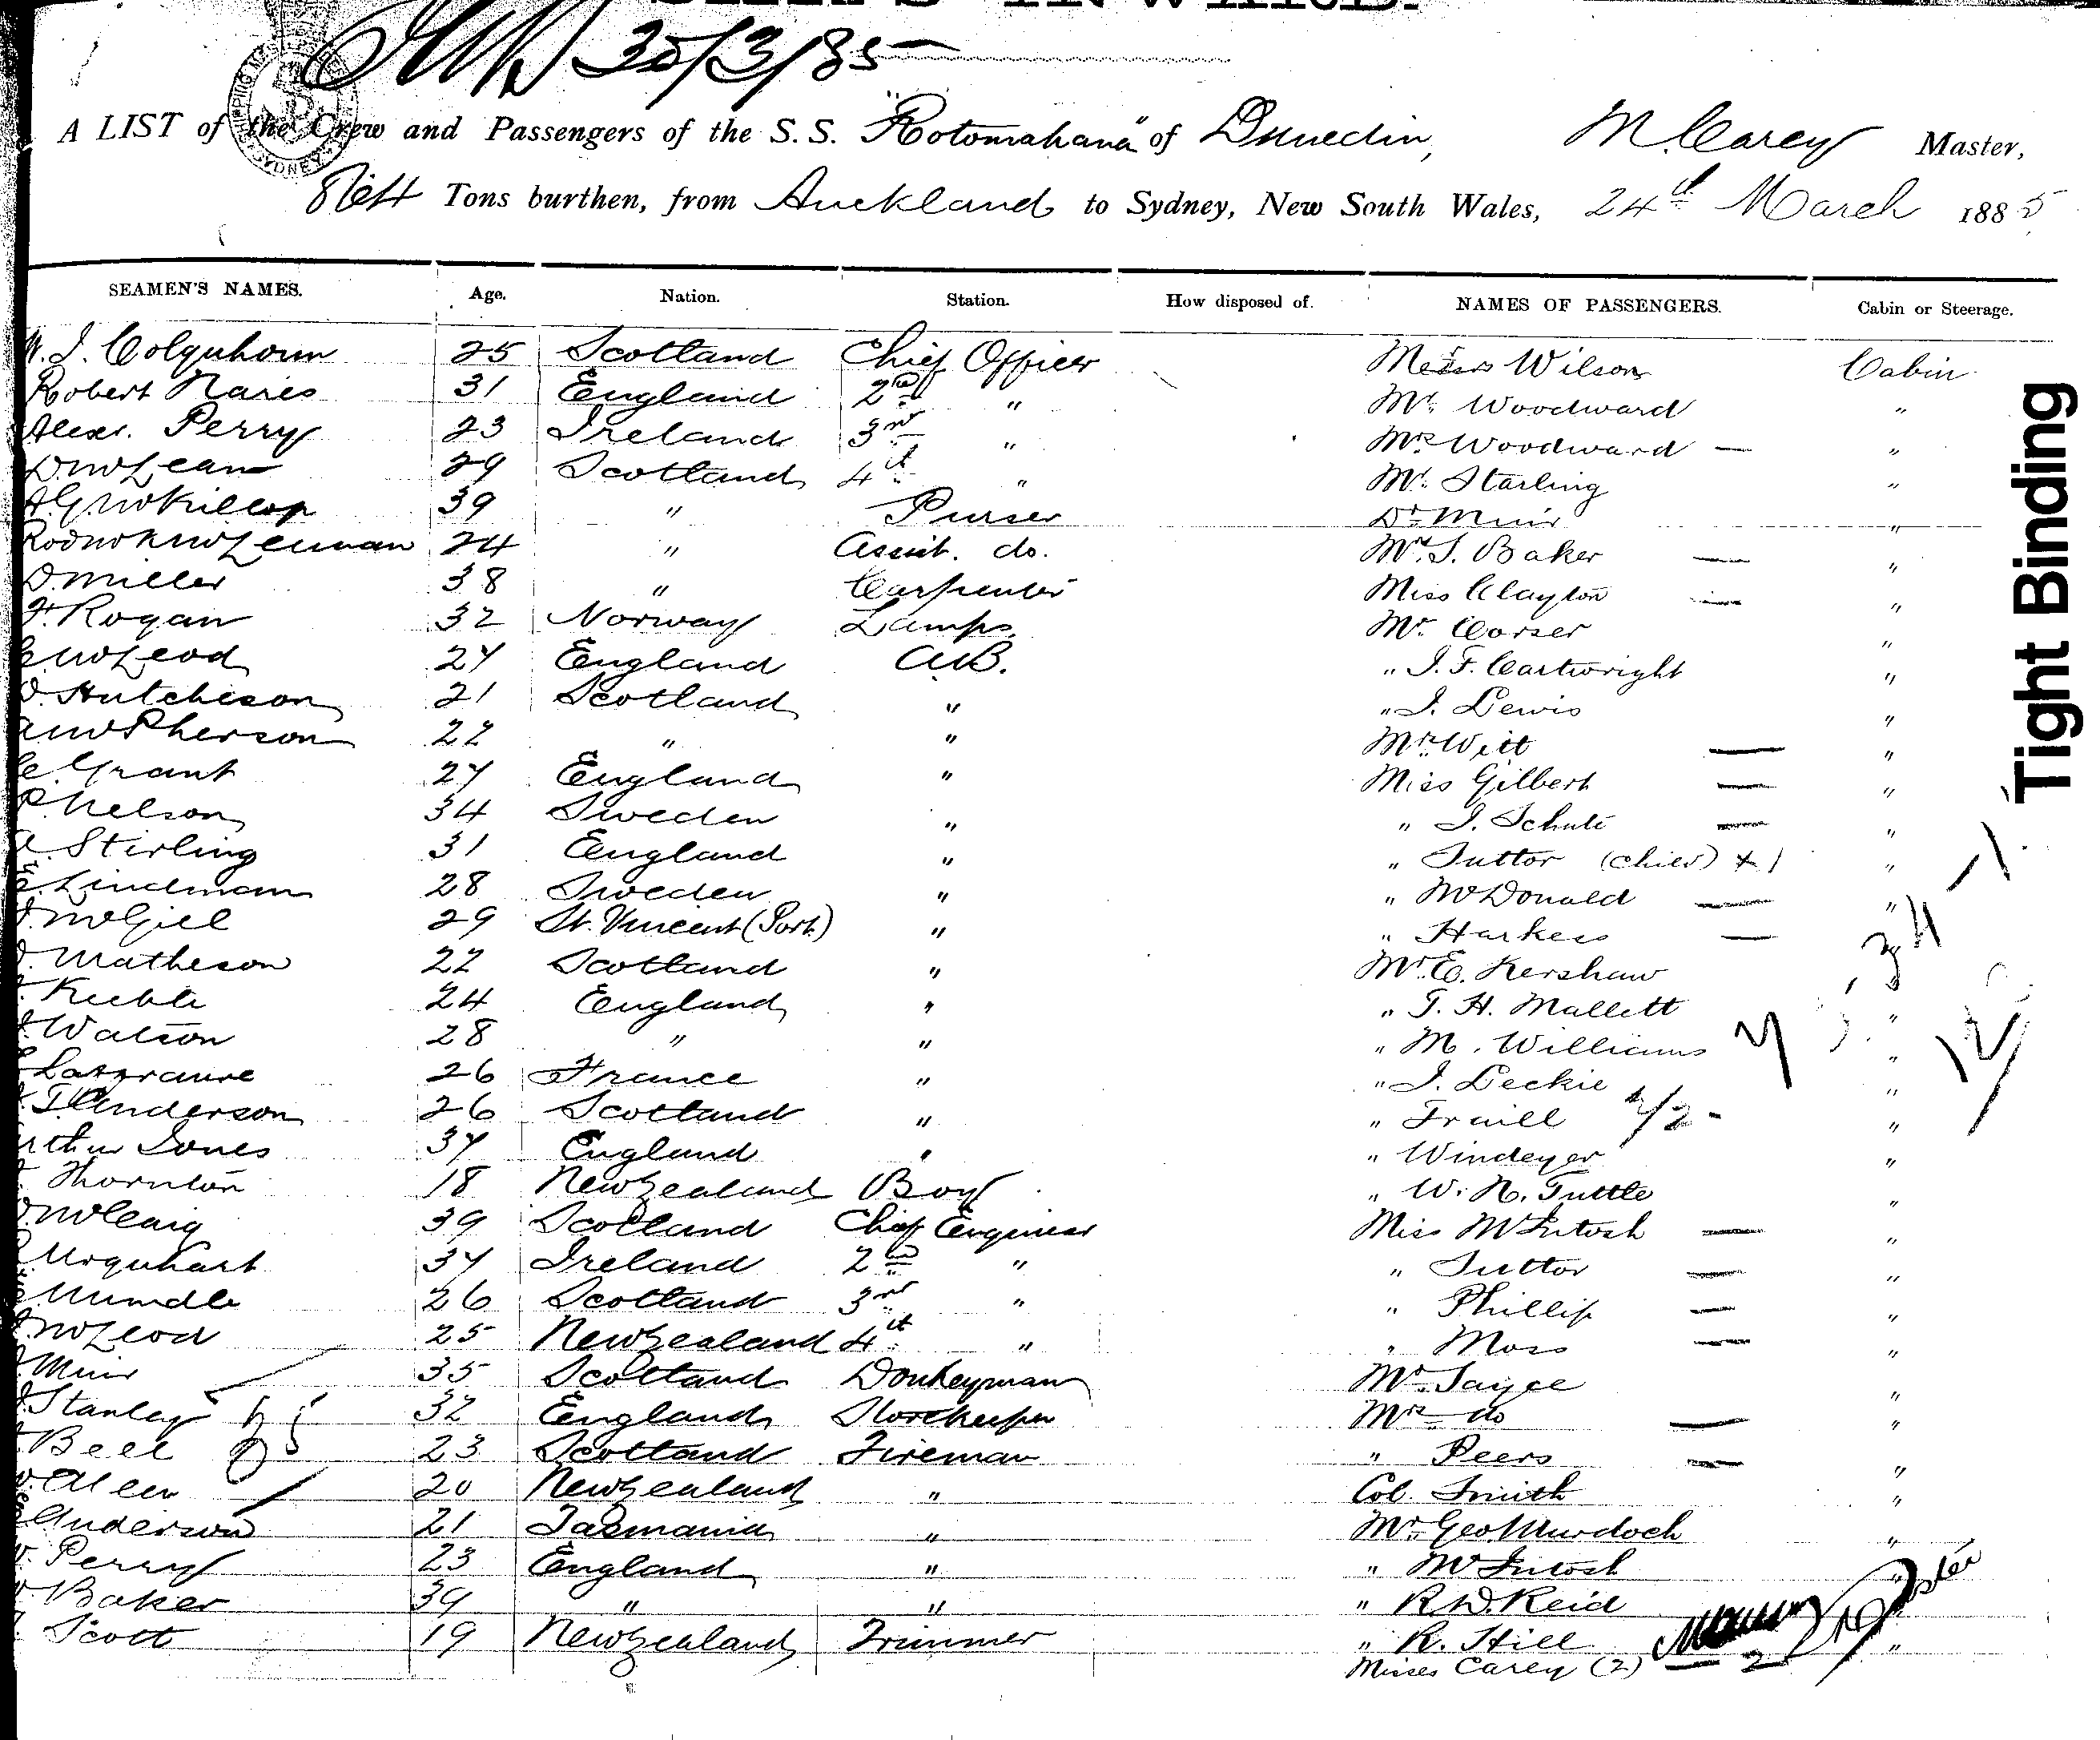 30/3/85
A LIST of the Crew and Passengers of the S.S. "Rotomahana" of Dunedin, M. Carey Master,
864 Tons burthen, from Auckland to Sydney, New South Wales, 24th March 1885
SEAMEN'S NAMES. Age. Nation. Station. How disposed of. NAMES OF PASSENGERS. Cabin or Steerage.
W. J. Colquhoun 25 Scotland Chief Officer Wilson Cabin
Robert Nares 31 England 2nd " Mr. Woodward "
Alexr. Perry 23 Ireland 3rd " Mrs Woodward — "
D McLean 29 Scotland 4th " Mr. Starling "
A G McKillop 39 " Purser Dr Muir "
McLennan 24 " Assist. do. Mrs. S. Baker — "
D Miller 38 " Carpenter Miss Clayton — "
F. Rogan 32 Norway Lamps Mr. Corser "
McLeod 27 England A.B. " J. F. Cartwright "
Hutcheson 21 Scotland " " J. Lewis "
A McPherson 22 " " Mrs Witt — "
C. Grant 27 England " Miss Gilbert — "
P. Nelson 34 Sweden " " — "
Stirling 31 England " " Suttor + 1 "
Lindman 28 Sweden " " McDonald — "
McGill 29 St. Vincent (Port.) " " Harkess — "
Matheson 22 Scotland " Mr. E. Kershaw "
Keeble 24 England " " T. H. Mallett "
Watson 28 " " " M. Williams "
26 France " " J. Leckie "
Anderson 26 Scotland " " Traill "
Arthur Jones 37 England " " Windeyer "
Thornton 18 New Zealand Boy " W. N. Tuttle "
McCraig 39 Scotland Chief Engineer Miss McIntosh — "
Urquhart 37 Ireland 2nd " " Suttor — "
Mundle 26 Scotland 3rd " " Phillip — "
McLeod 25 New Zealand 4th " " Moss — "
Muir 35 Scotland Donkeyman Mr. Sayce "
Stanley 32 England Storekeeper Mrs do — "
Bell 23 Scotland Fireman " Peers — "
Allen 20 New Zealand " Col. Smith "
Anderson 21 Tasmania " Mr. Geo. Murdoch "
Perry 23 England " " McIntosh "
Baker 39 " " " R. W. Reid "
Scott 19 New Zealand Trimmer " R. Hill "
Misses Carey (2)
Tight Binding